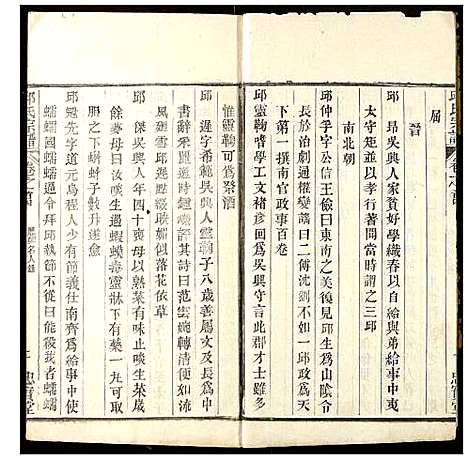 屬
晉
邱　昂吳興人家貧好學織春以自給與弟給事中夷
太守矩並以孝行著聞時謂之三邱
南北朝
邱仲孚字公信王儉曰東南之美復見邱生爲山陰令
長於治劇通權變謠曰二傅沈劉不如一邱政爲天
下第一撰南宮政事百卷
邱靈鞠嗜學工文褚彥回爲吳興守言此郡才士雖多
惟靈鞠可爲祭酒
邱　遲字希範吳興人靈鞠子八歲善屬文及長爲中
書辭采麗逎時鍾嶸評其詩曰范雲婉轉清便如流
風廻雪邱遲點綴映媚似落花依草
邱　傑吳興人年四十喪母以熟菜有味止啖生菜歲
餘夢母曰汝啖生菜遇蝦蟆毒靈牀下有藥一丸可取
服之下蝌蚪子數升遂愈
邱　冠先字道元烏程人少有節義仕南齊爲給事中使
蠕蠕國蠕蠕逼令拜邱執節不從曰能殺我者蠕蠕
邱氏宗譜
卷之首
歷代名人錄
忠實堂